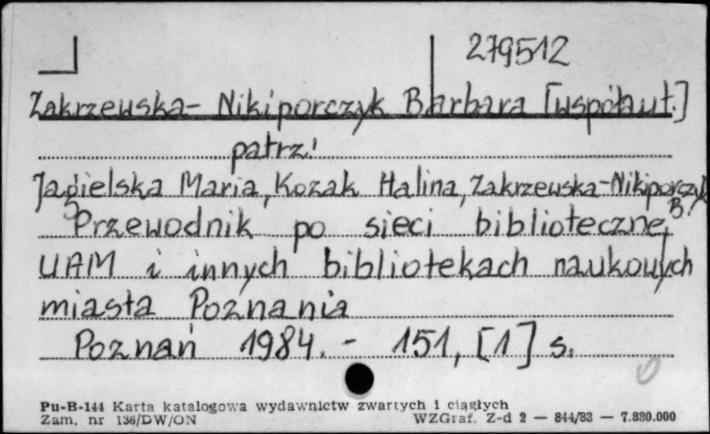 279512
Zakrzewska-Nikiporczyk Barbara [współaut.]
patrz:
Jagielska Maria, Kozak Halina, Zakrzewska-Nikiporczyk B.
Przewodnik po sieci bibliotecznej
UAM i innych bibliotekach naukowych
miasta Poznania
Poznań 1984. - 151, [1] s.
Pu-B-144 Karta katalogowa wydawnictw zwartych i ciągłych
Zam. nr 136/DW/ON WZGraf. Z-d 2 — 844/83 — 7.880.000